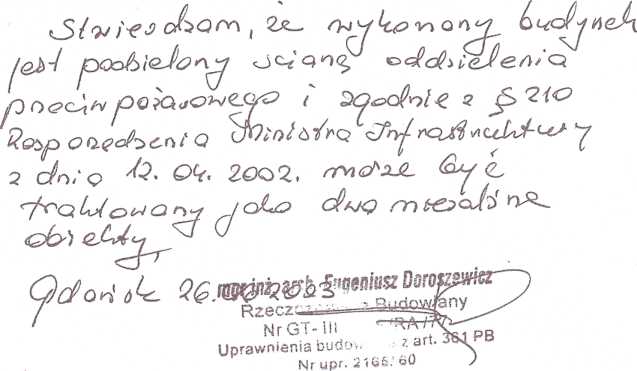 Stwierdzam, że wykonany budynek
jest podzielony ścianą oddzielenia
przeciwpożarowego i zgodnie z § 210
Rozporządzenia Ministra Infrastruktury
z dnia 12.04.2002. może być
traktowany jako dwa niezależne
obiekty,
Gdańsk 26. 2003
mgr inż. arch. Eugeniusz Doroszewicz
Budowlany
Nr GT-III
Uprawnienia z art. 361 PB
Nr upr. 2166/60